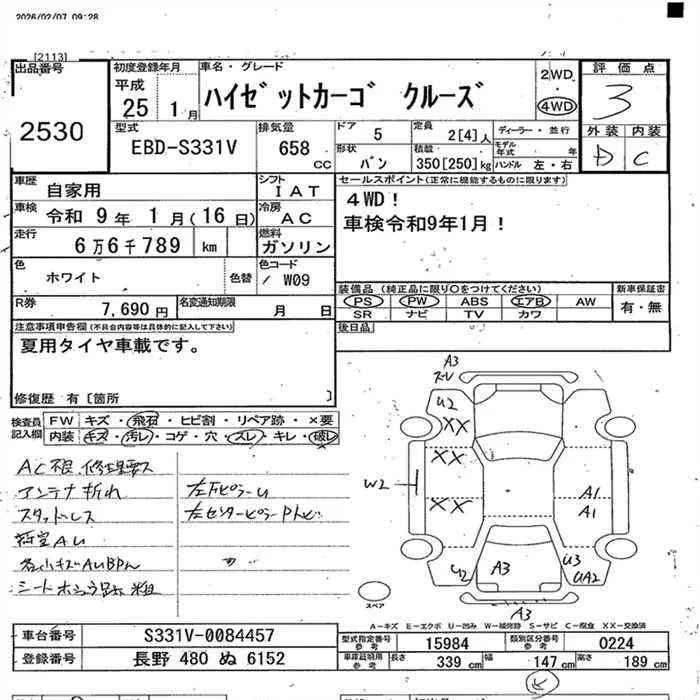 2026/02/07 09:28
[2113]
出品番号
2530
初度登録年月
平成
25 1月
車名・グレード
ハイゼットカーゴ クルーズ
2WD
4WD
評価点
3
型式
EBD-S331V
排気量
658
CC
ドア
5
定員
2[4]人
ディーラー・並行
モデル
年式 年
外装 内装
D C
形状
バン
積載
350[250]kg
ハンドル 左・右
車歴
自家用
シフト
I A T
セールスポイント(正常に機能するものに限ります)
4WD!
車検令和9年1月!
車検
令和 9年 1月(16日)
冷房
A C
走行
6万6千789 km
燃料
ガソリン
色
ホワイト
色替
色コード
/ W09
装備品(純正品に限り○をつけてください)
新車保証書
PS PW ABS エアB AW
有・無
SR ナビ TV カワ
R券
7,690円
名変通知期限
月 日
後日品
注意事項申告欄(不具合内容等は具体的に記入して下さい)
夏用タイヤ車載です。
修復歴 有〔箇所 〕
検査員
記入欄
FW キズ・飛石・ヒビ割・リペア跡・×要
内装 キズ・汚レ・コゲ・穴・スレ・キレ・破レ
AC不良 修理要ス
アンテナ折れ
スタッドレス
左FピラーU
左センターピラーPトビ
荷室AU
各小キズAUBPん
シートホシュウ跡 粗
A3
スーレ
U2
XX
XX
XX
W2
A1
A1
U2
A3
U3
UA2
A3
スペア
A-キズ E-エクボ U-凹み W-補修跡 S-サビ C-腐食 XX-交換済
車台番号
S331V-0084457
登録番号
長野 480 ぬ 6152
型式指定番号
参考
15984
類別区分番号
参考
0224
車庫証明用
参考
長さ 339cm 幅 147cm 高さ 189cm